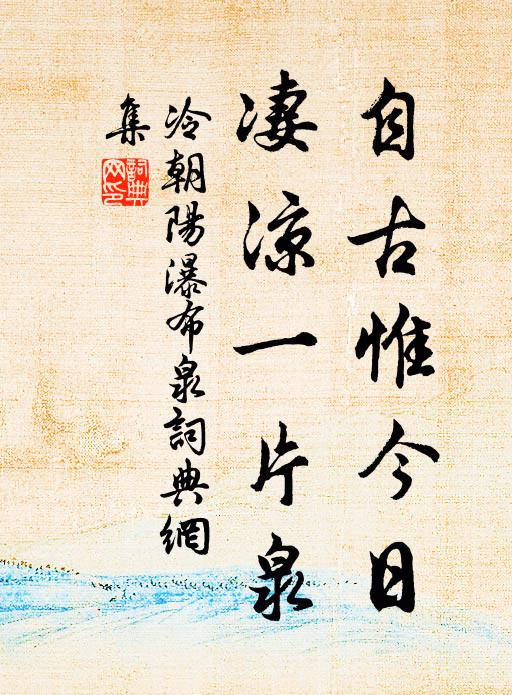 自古惟今日
凄涼一片泉
冷朝陽瀑布泉詞典網
集
詞典
網印